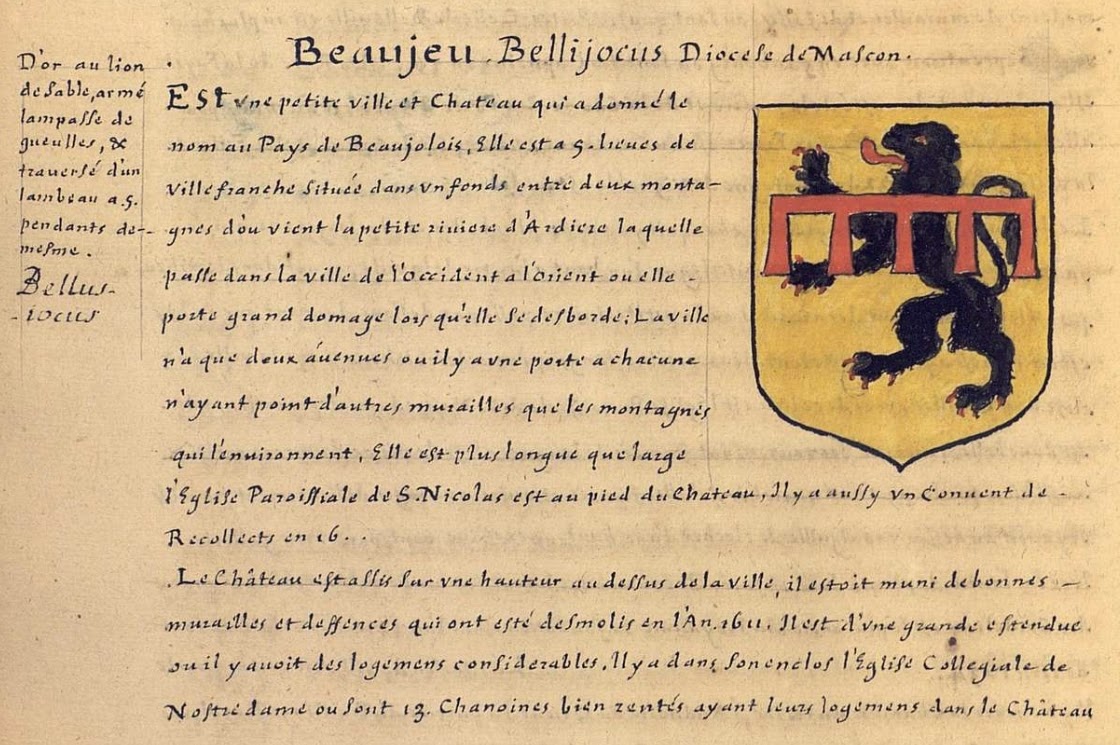 Beaujeu. Bellijocus Diocese de Mascon.
D'or au lion
de sable, armé
lampasse de
gueulles, &
traversé d'un
lambeau a 5.
pendants de-
mesme.
Bellus-
-iocus
Est vne petite ville et Chateau qui a donné le
nom au Pays de Beaujolois, Elle est a 5. lieues de
Villefranche située dans vn fonds entre deux monta-
gnes d'ou vient la petite riviere d'Ardiere laquelle
passe dans la ville de l'occident a l'orient ou elle
porte grand domage lors qu'elle se desborde; La ville
n'a que deux avenues ou il y a vne porte a chacune
n'ayant point d'autres murailles que les montagnes
qui l'enuironnent, Elle est plus longue que large
l'Eglise Paroissiale de S. Nicolas est au pied du Chateau, Il y a aussy vn Conuent de
Recollects en 16..
Le Château est assis sur vne hauteur au dessus de la ville, il estoit muni de bonnes
murailles et deffences qui ont esté desmolis en l'An. 1611. Il est d'vne grande estendue
ou il y avoit des logemens considerables. Il y a dans son enclos l'Eglise Collegiale de
Nostre dame ou sont 13. Chanoines bien rentés ayant leurs logemens dans le Château